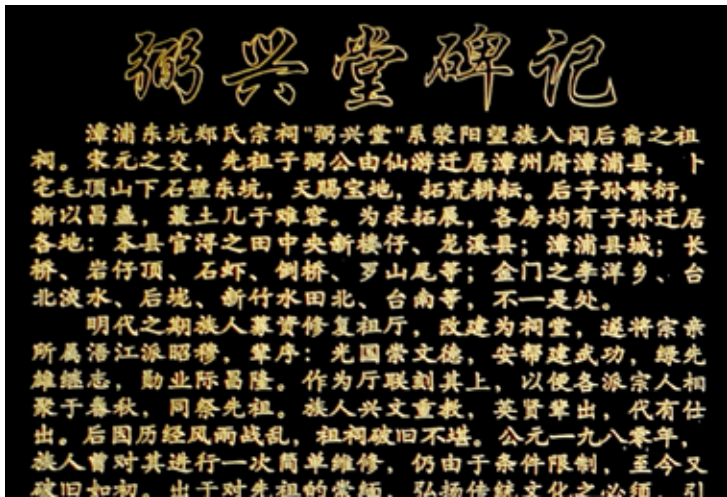 弼兴堂碑记
漳浦东坑郑氏宗祠"弼兴堂"系荥阳望族入闽后裔之祖
祠。宋元之交，先祖子弼公由仙游迁居漳州府漳浦县，卜
宅毛顶山下石壁东坑，天赐宝地，拓荒耕耘。后子孙繁衍，
渐以昌盛，蕞土几于难容。为求拓展，各房均有子孙迁居
各地：本县官浔之田中央新楼仔、龙溪县；漳浦县城；长
桥、岩仔顶、石虾、倒桥、罗山尾等；金门之李洋乡、台
北淡水、后垅、新竹水田北、台南等，不一是处。
明代之期族人募资修复祖厅，改建为祠堂，遂将宗亲
所属浯江派昭穆，辈序：光国崇文德，安帮建武功，绿先
雄继志，勋业际昌隆。作为厅联刻其上，以便各派宗人相
聚于春秋，同祭先祖。族人兴文重教，英贤辈出，代有仕
出。后因历经风雨战乱，祖祠破旧不堪。公元一九八零年，
族人曾对其进行一次简单维修，仍由于条件限制，至今又
破旧如初。出于对先祖的崇缅，弘扬传统文化之必须，引